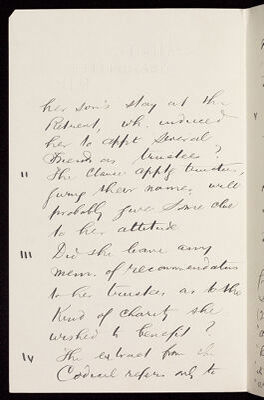 her son's stay at the
Retreat, wh. induced
her to appt several
Friends as trustees?
II The clause apptg trustees,
giving their names, will
probably give some clue
to her attitude
III Did she leave any
mem. of recommendation
to her trustees as to the
Kind of charity she
wished to benefit?
IV The extract from the
Codicil refers only to